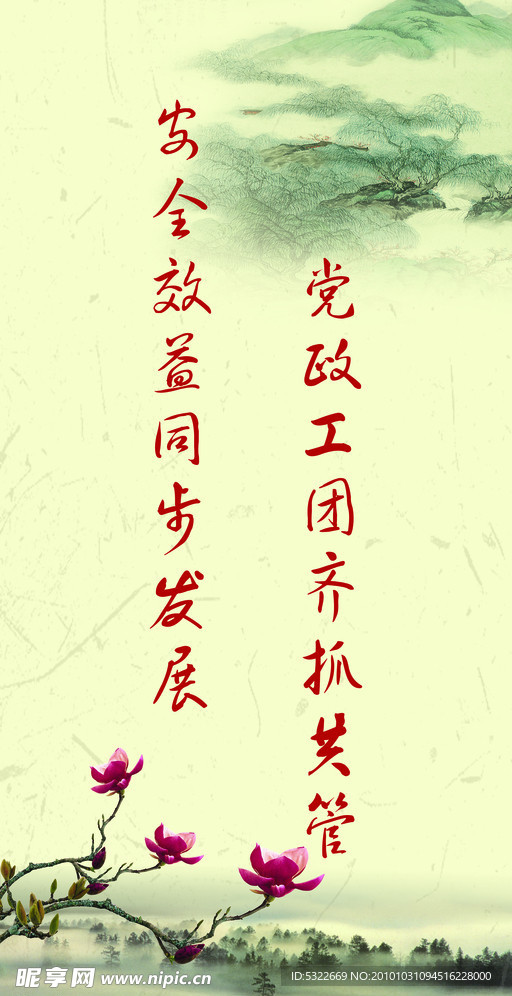 党政工团齐抓共管
安全效益同步发展
昵享网 www.nipic.cn
ID:5322669 NO:20101031094516228000